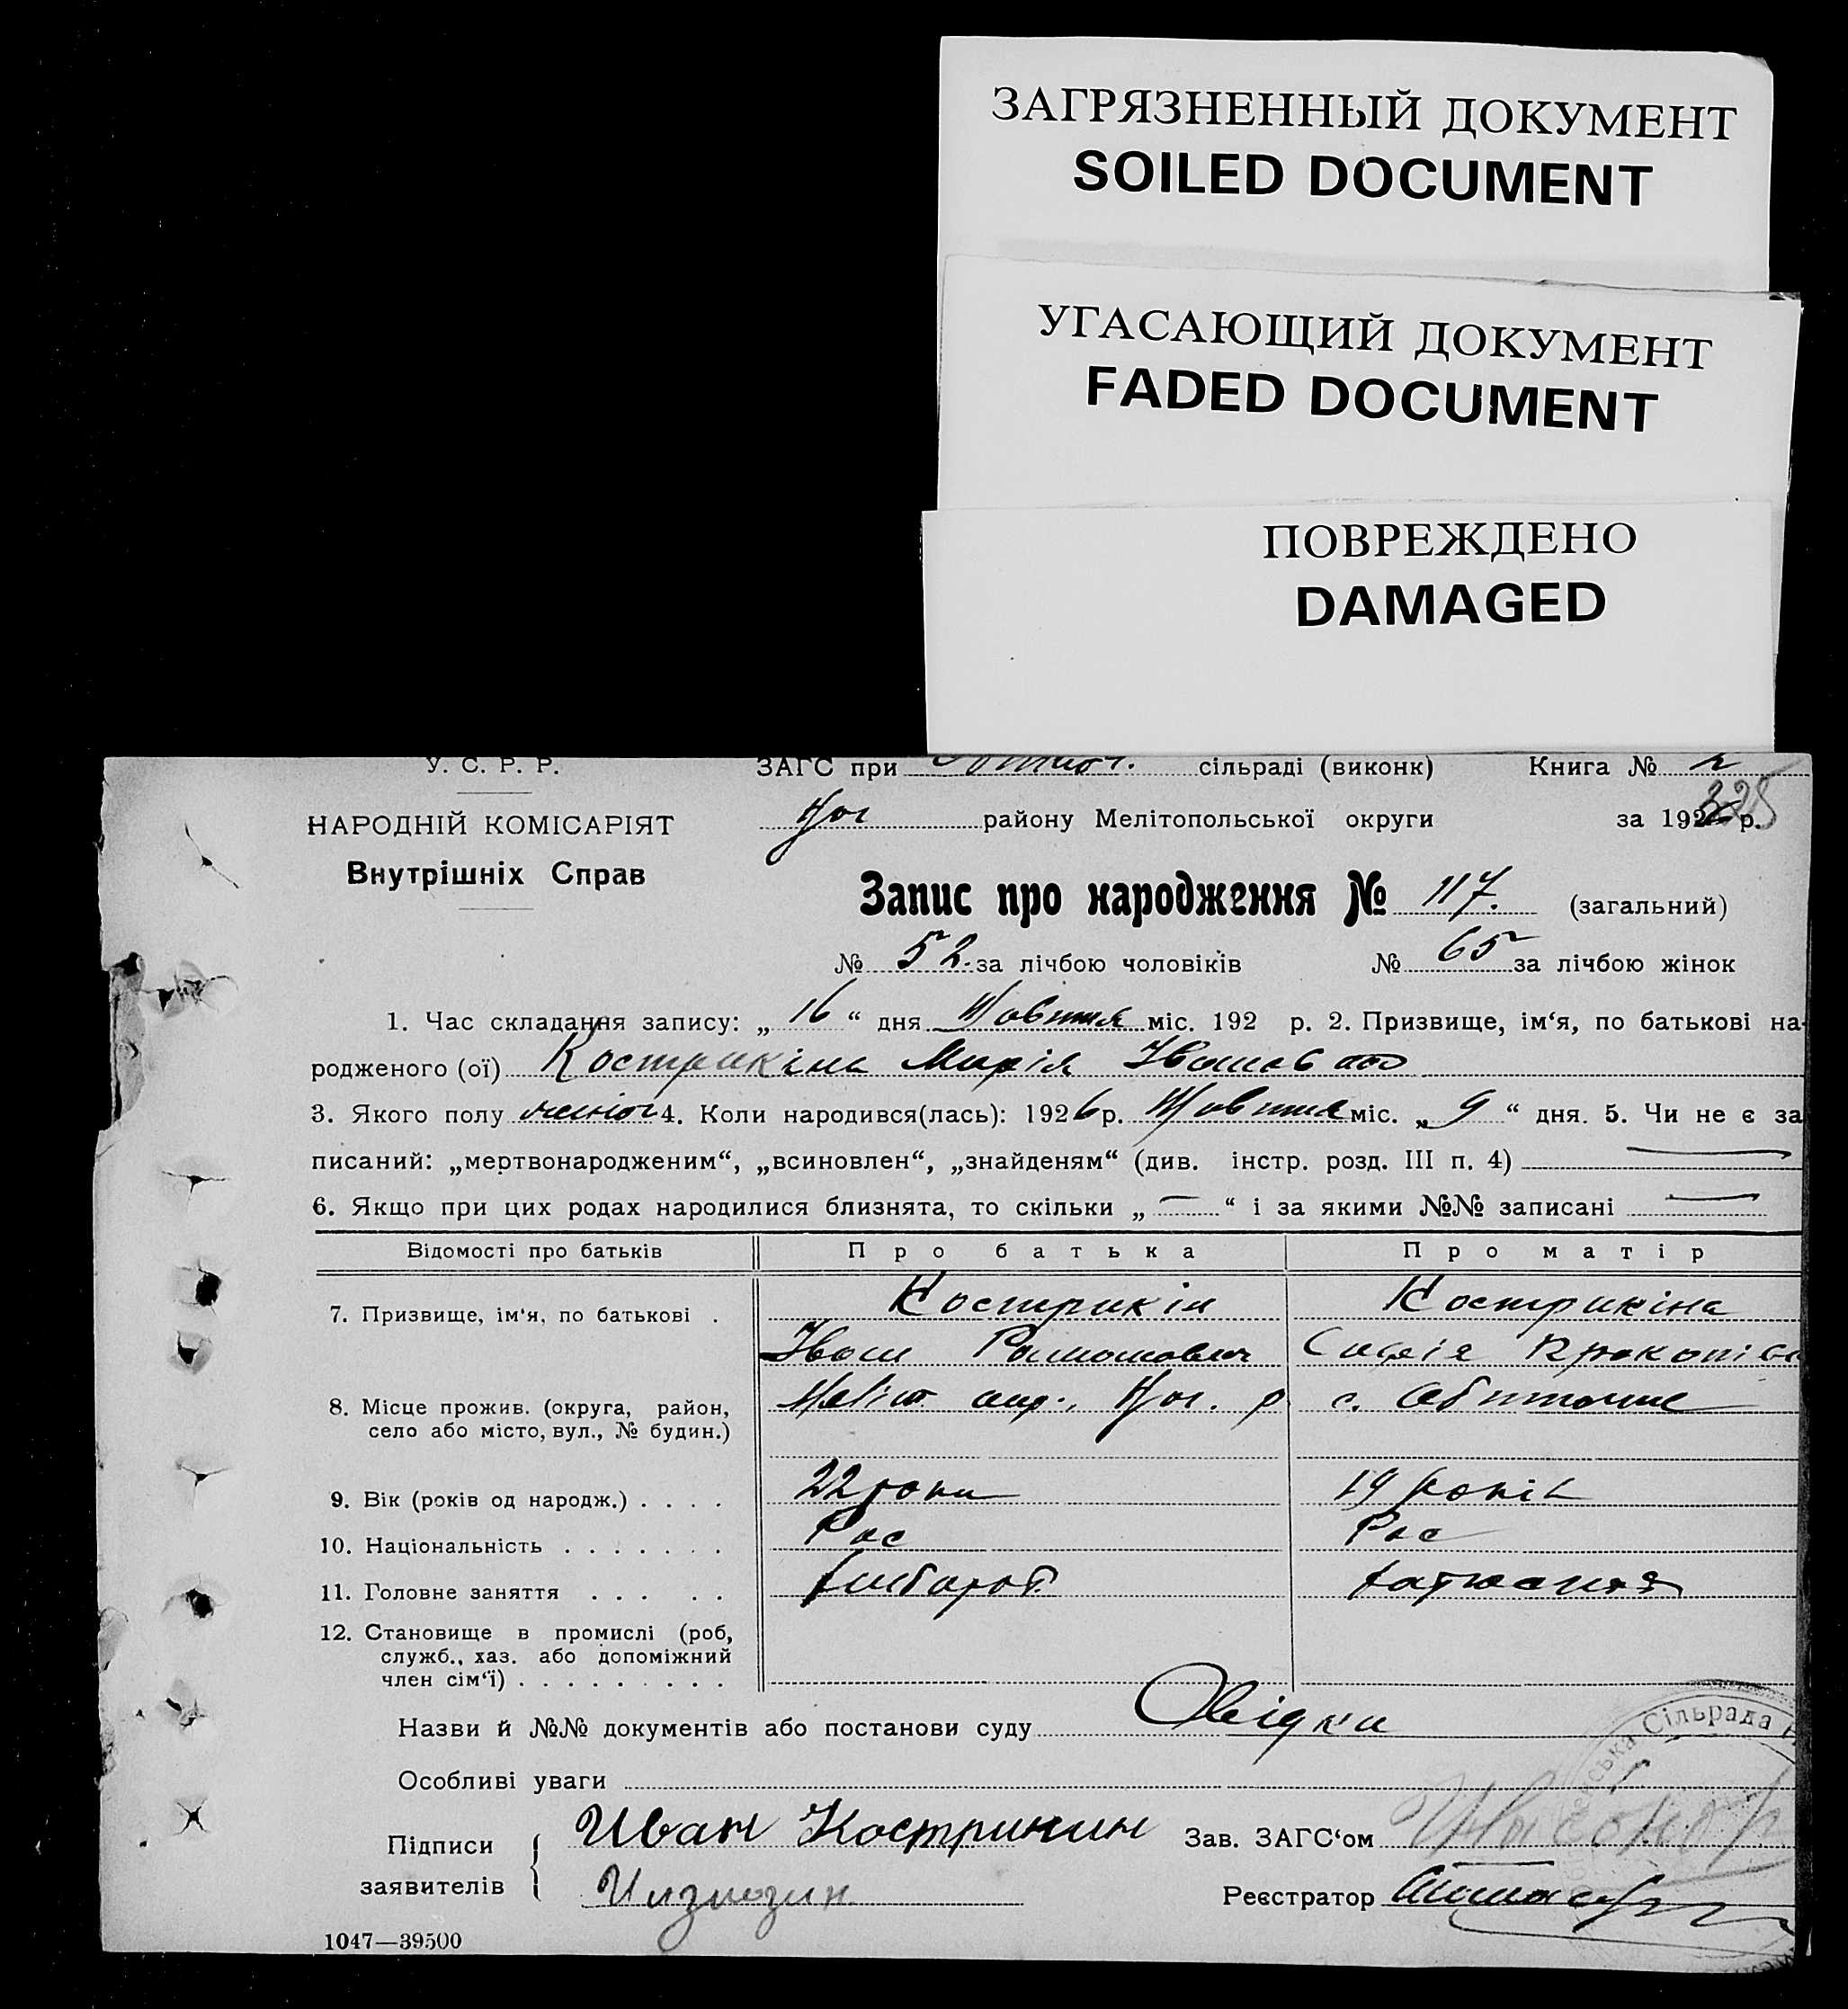 ЗАГРЯЗНЕННЫЙ ДОКУМЕНТ
SOILED DOCUMENT
УГАСАЮЩИЙ ДОКУМЕНТ
FADED DOCUMENT
ПОВРЕЖДЕНО
DAMAGED
У. С. Р. Р. ЗАГС при сільраді (виконк) Книга № 2
325
НАРОДНІЙ КОМІСАРІЯТ Ног району Мелітопольської округи за 1926 р.
Внутрішніх Справ
Запис про народження № 117. (загальний)
№ 52. за лічбою чоловіків № 65 за лічбою жінок
1. Час складання запису: „ 16 “ дня Жовтня міс. 192 р. 2. Призвище, ім‘я, по батькові на-
родженого (ої) Кострикіна Марія Іванов
3. Якого полу жіноч 4. Коли народився(лась): 1926 р. Жовтня міс. „ 9 “ дня. 5. Чи не є за
писаний: „мертвонародженим“, „всиновлен“, „знайденям“ (див. інстр. розд. III п. 4) —
6. Якщо при цих родах народилися близнята, то скільки „ — “ і за якими №№ записані —
Відомості про батьків Про батька Про матір
7. Призвище, ім‘я, по батькові . Кострикін Кострикіна
Іван Романович Софія Прокопівн
8. Місце прожив. (округа, район, Меліт. окр., Ног. р. с. Обіточне
село або місто, вул., № будин.)
9. Вік (років од народж.) . . . . 22 роки 19 років
10. Національність . . . . . . . Рос Рос
11. Головне заняття . . . . . хлібороб.
12. Становище в промислі (роб,
служб., хаз. або допоміжний
член сім‘ї) . . . . . . . . .
Назви й №№ документів або постанови суду Свідки
Сільрада
Особливі уваги
Підписи Иван Кострикин Зав. ЗАГС‘ом
заявителів Реєстратор
1047—39500